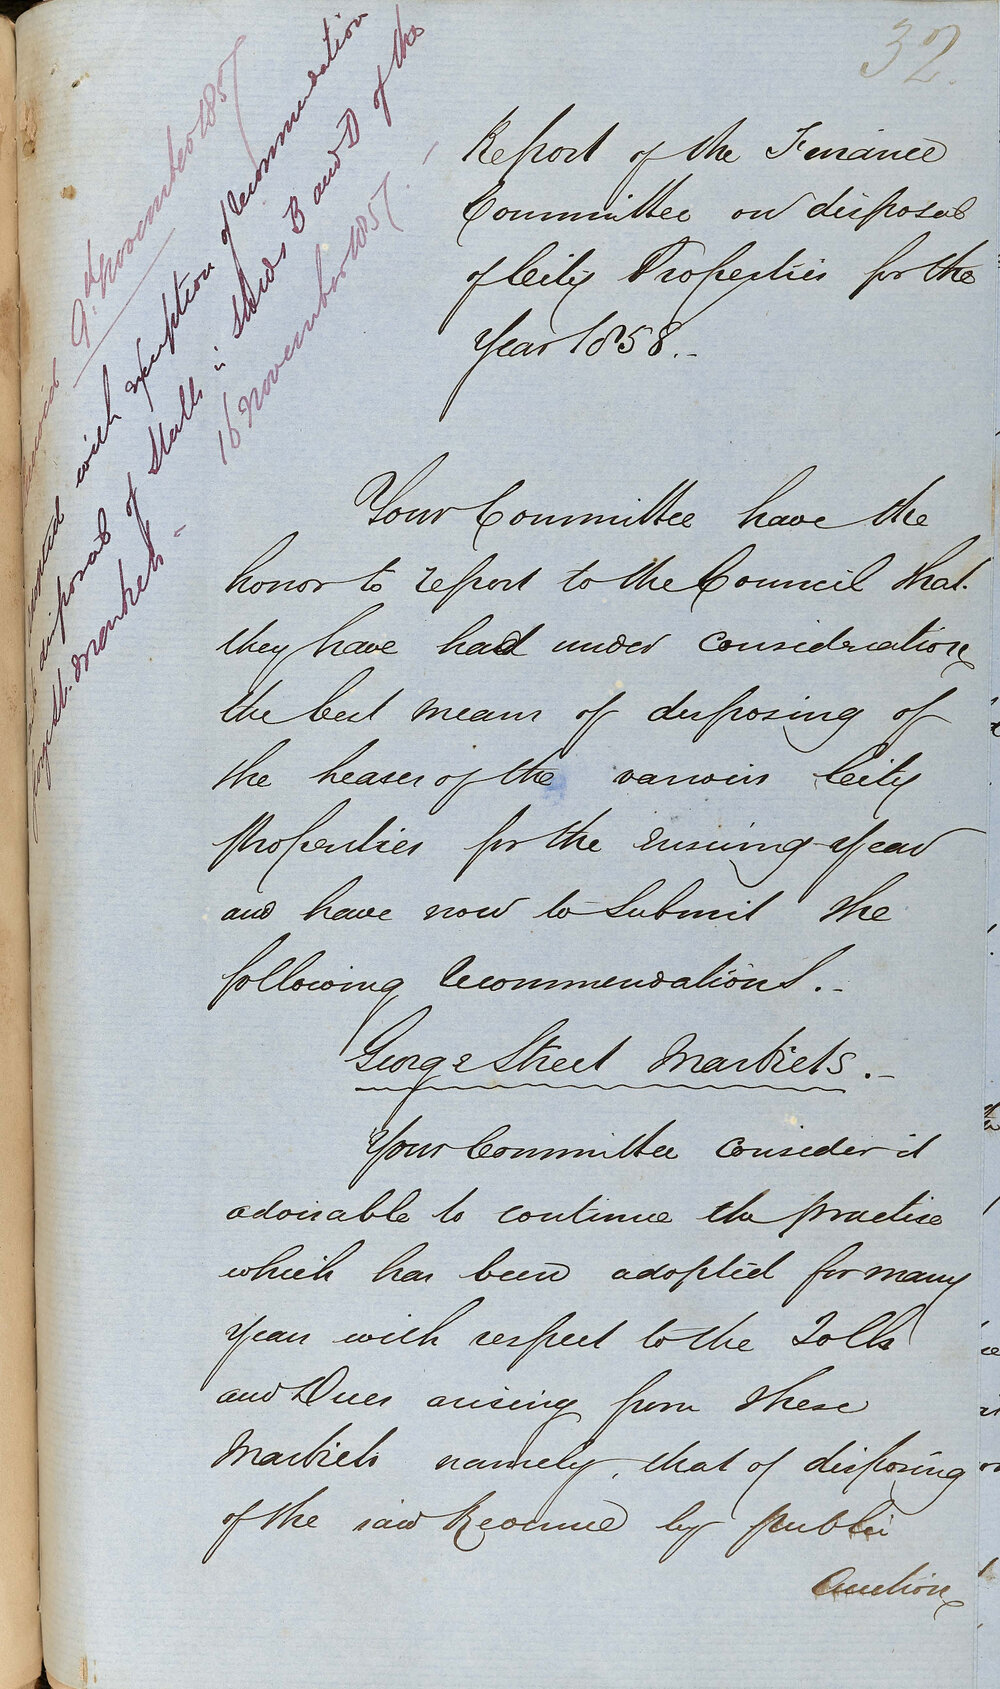 32.
Report of the Finance
Committee on disposal
of City Properties for the
Year 1858.-
9th November 1857
with exception of recommendation
disposal of Stalls in Sheds B and D of the
Markets -
16 November 1857
Your Committee have the
honor to report to the Council that
they have had under consideration
the best means of disposing of
the leases of the various City
Properties for the ensuing year
and have now to submit the
following recommendations.-
George Street Markets.-
Your Committee consider it
advisable to continue the practise
which has been adopted for many
years with respect to the Tolls
and Dues arising from these
Markets namely, that of disposing
of the said Revenue by public
Auction